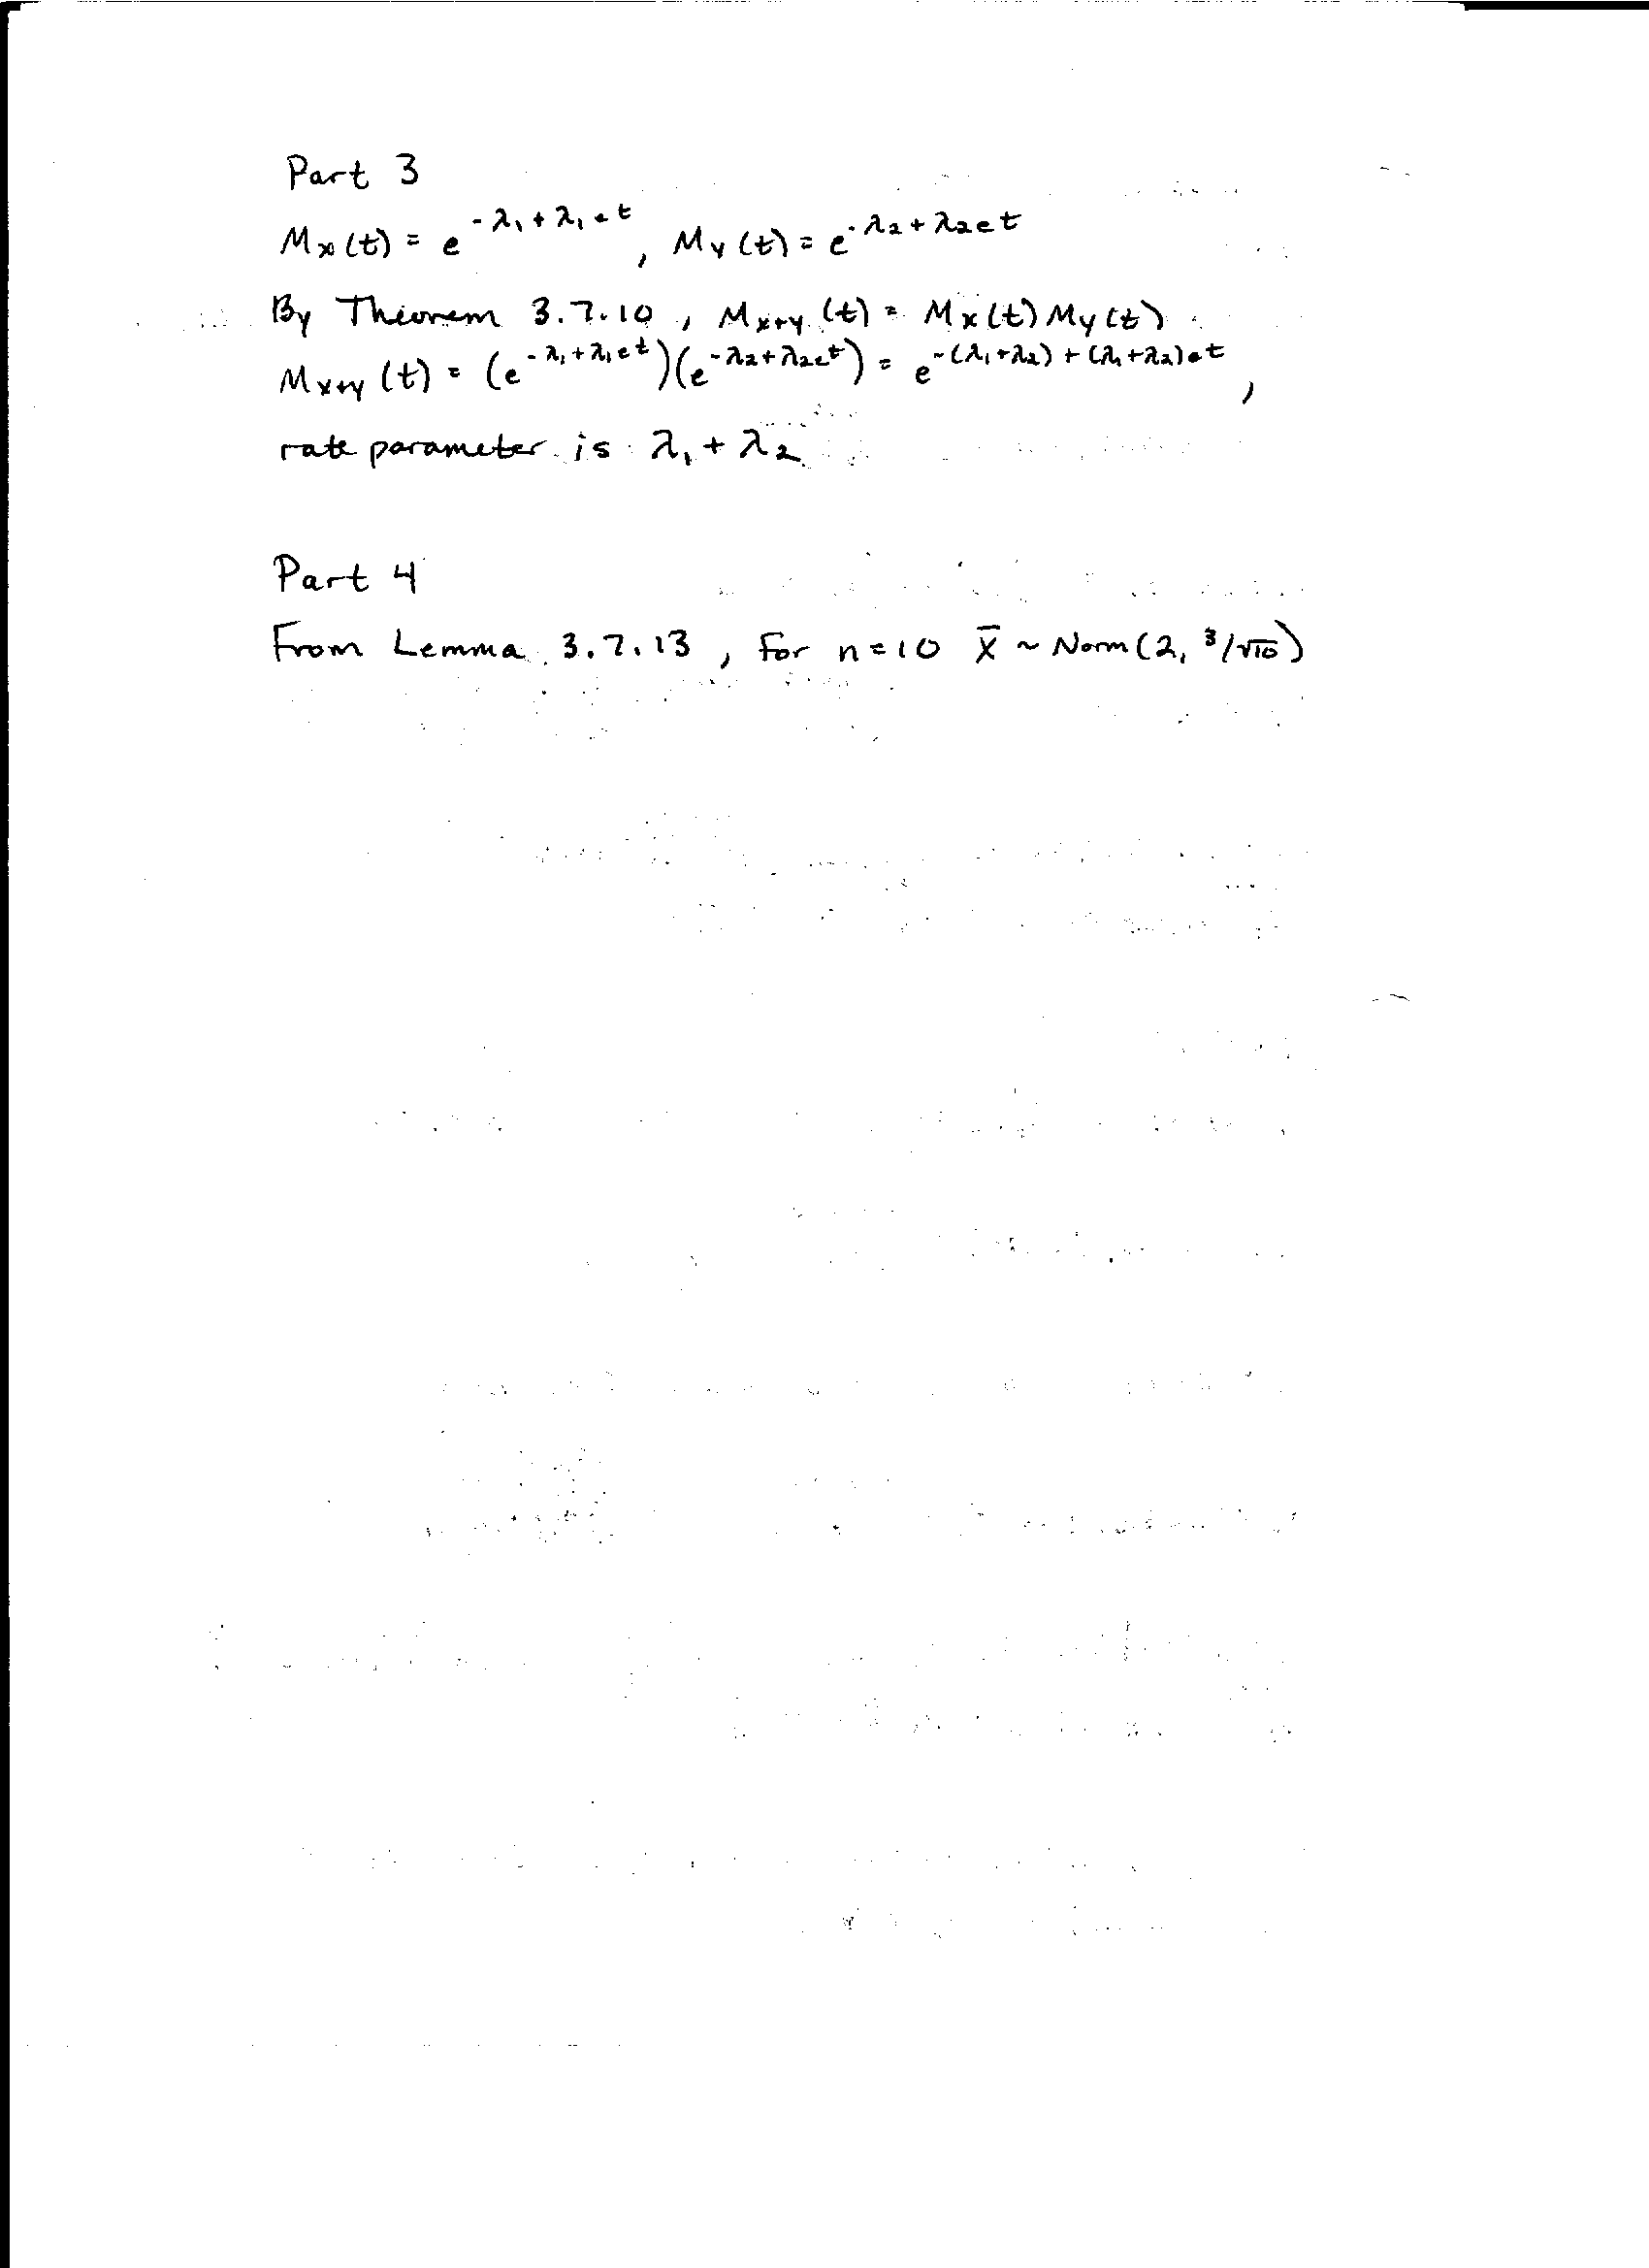 Part 3
Mx(t) = e^-λ₁+λ₁et, My(t) = e^-λ₂+λ₂et
By Theorem 3.7.10, Mx+y(t) = Mx(t)My(t)
Mx+y(t) = (e^-λ₁+λ₁et)(e^-λ₂+λ₂et) = e^-(λ₁+λ₂)+(λ₁+λ₂)et,
rate parameter is λ₁+λ₂
Part 4
From Lemma 3.7.13, For n=10 X̄ ~ Norm(2, 3/√10)